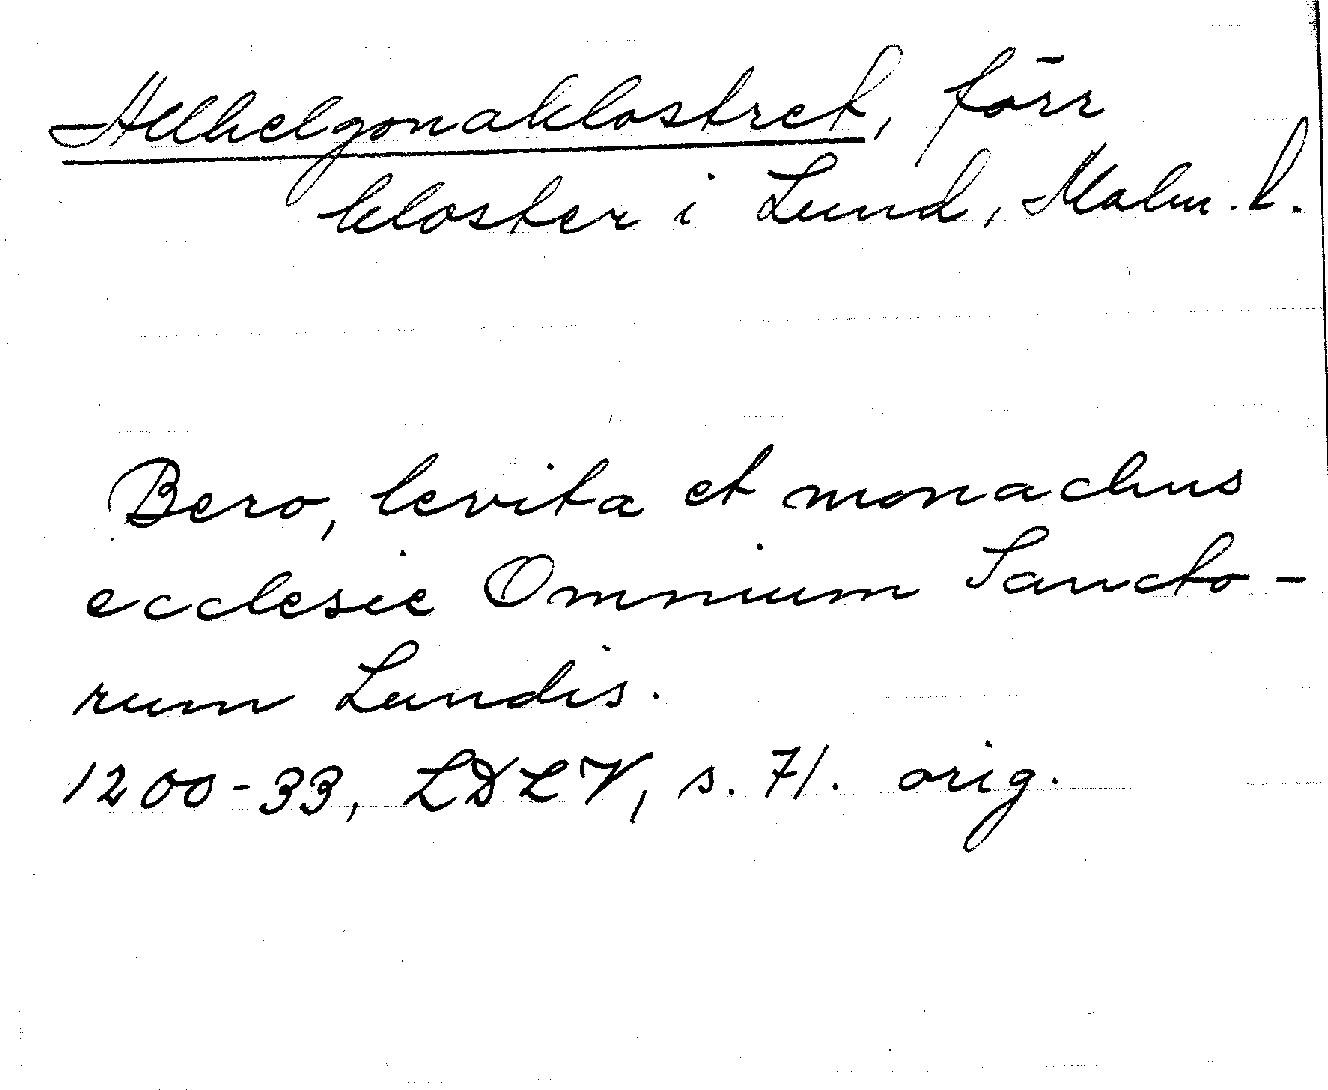 Allhelgonaklostret, förr
kloster i Lund, Malm. l.
Bero, levita et monachus
ecclesie Omnium Sancto-
rum Lundis.
1200-33, LDLV, s. 71. orig.